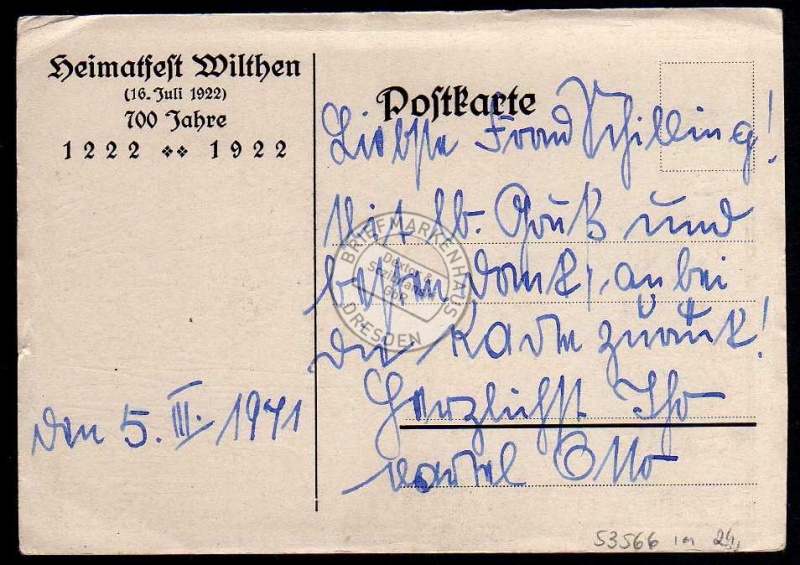 Heimatfest Wilthen
(16. Juli 1922)
700 Jahre
1222 ❖❖ 1922
Postkarte
Liebste Frau Schilling!
Mit lb. Gruß und
besten Dank, anbei
die Karte zurück!
Herzlichst Ihr
Otto
den 5. III. 1941
BRIEFMARKENHAUS
DRESDEN
GbR
53566